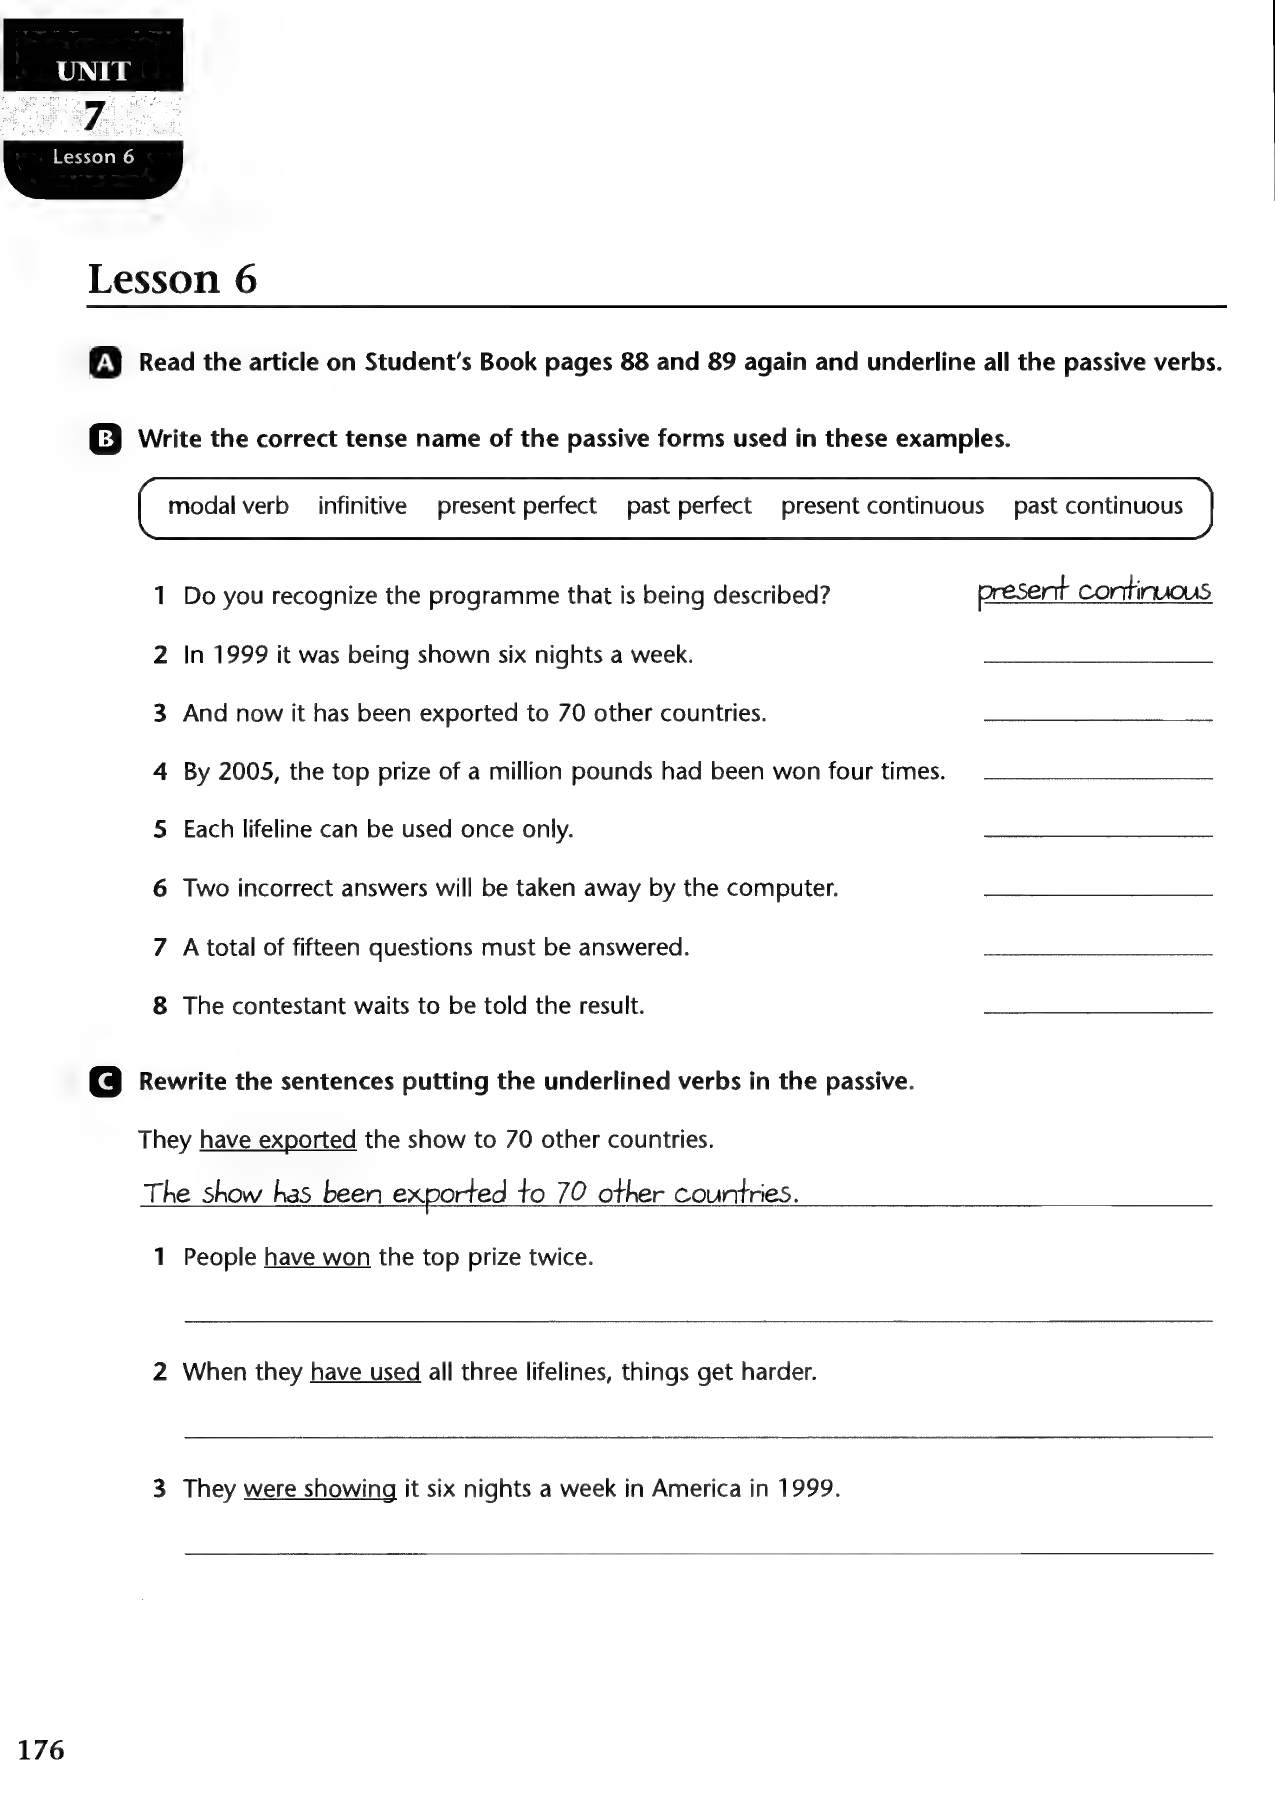 UNIT
7
Lesson 6
Lesson 6
A Read the article on Student's Book pages 88 and 89 again and underline all the passive verbs.
B Write the correct tense name of the passive forms used in these examples.
modal verb infinitive present perfect past perfect present continuous past continuous
1 Do you recognize the programme that is being described? present continuous
2 In 1999 it was being shown six nights a week.
3 And now it has been exported to 70 other countries.
4 By 2005, the top prize of a million pounds had been won four times.
5 Each lifeline can be used once only.
6 Two incorrect answers will be taken away by the computer.
7 A total of fifteen questions must be answered.
8 The contestant waits to be told the result.
C Rewrite the sentences putting the underlined verbs in the passive.
They have exported the show to 70 other countries.
The show has been exported to 70 other countries.
1 People have won the top prize twice.
2 When they have used all three lifelines, things get harder.
3 They were showing it six nights a week in America in 1999.
176